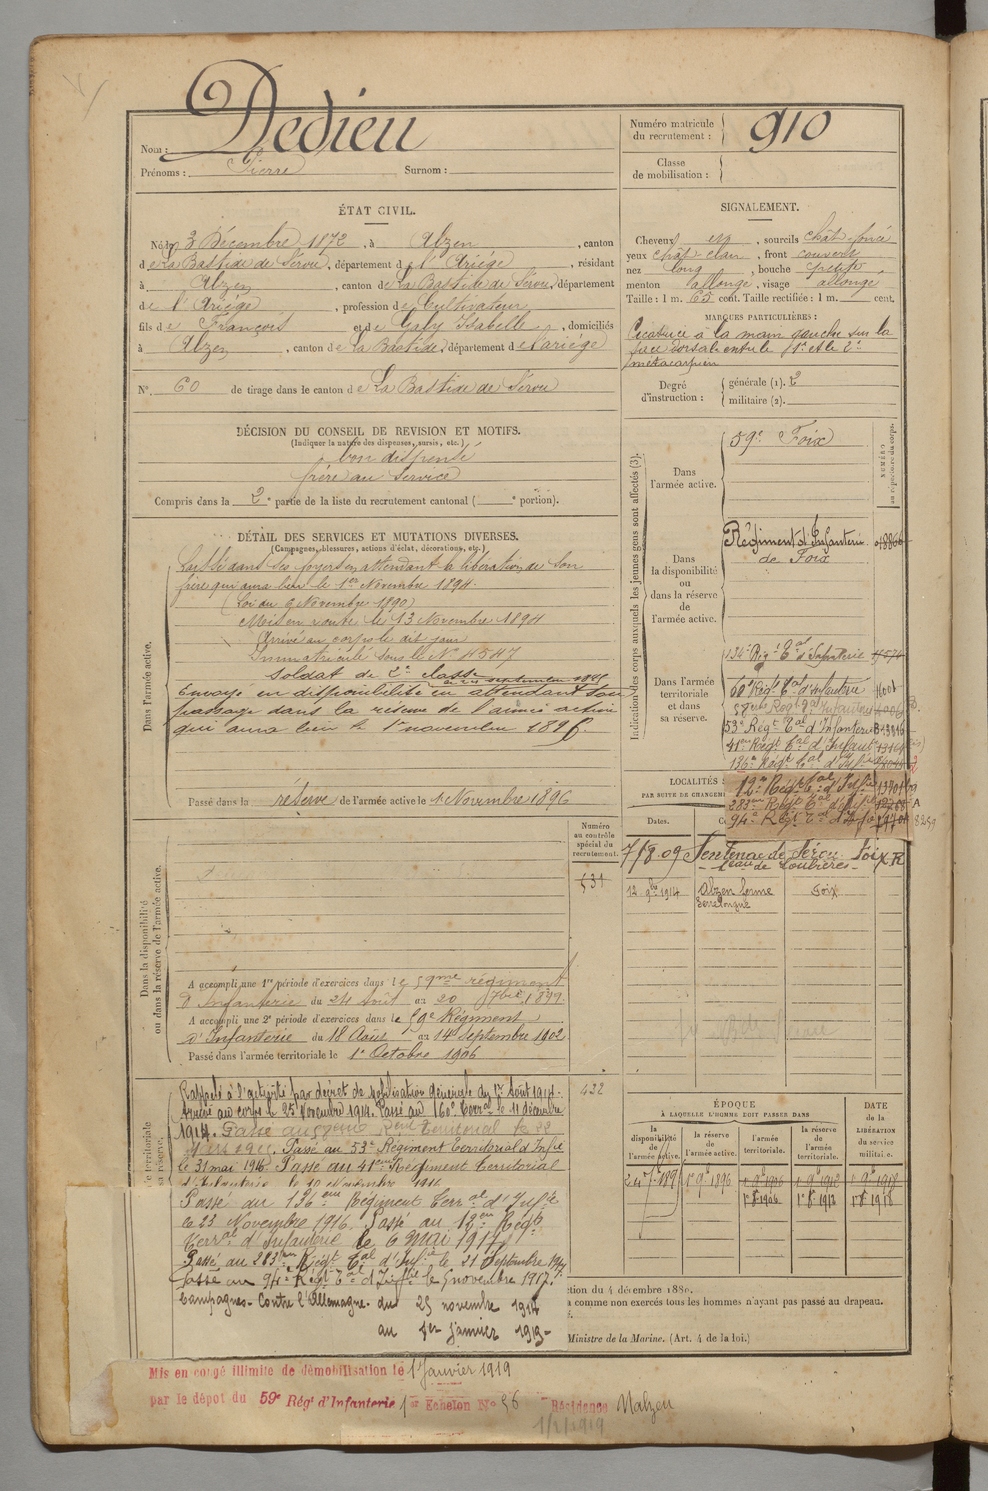 Nom : Dedieu
Prénoms : Pierre Surnom :
Numéro matricule du recrutement : 910
Classe de mobilisation :
ÉTAT CIVIL.
Né le 3 Décembre 1872, à Alzen, canton
de La Bastide de Sérou, département de l'Ariège, résidant
à Alzen, canton de La Bastide de Sérou, département
de l'Ariège, profession de Cultivateur
fils de François et de Galy Isabelle, domiciliés
à Alzen, canton de La Bastide, département de l'ariège
N° 60 de tirage dans le canton de La Bastide de Sérou
DÉCISION DU CONSEIL DE REVISION ET MOTIFS.
(Indiquer la nature des dispenses, sursis, etc.)
bon dispensé
frère au Service
Compris dans la 2e partie de la liste du recrutement cantonal ( e portion).
SIGNALEMENT.
Cheveux , sourcils chât foncé
yeux chât clair, front couvert
nez long, bouche petite
menton allongé, visage allongé
Taille : 1 m. 65 cent. Taille rectifiée : 1 m. cent.
MARQUES PARTICULIÈRES :
Cicatrice à la main gauche sur la
face dorsale entre le 1er et le 2e
métacarpien
Degré d'instruction : générale (1). 2
militaire (2).
DÉTAIL DES SERVICES ET MUTATIONS DIVERSES.
(Campagnes, blessures, actions d'éclat, décorations, etc.)
Dans l'armée active.
Laissé dans ses foyers en attendant la libération de son
frère qui aura lieu le 1er Novembre 1894.
(Loi du 6 Novembre 1890)
Mis en route le 13 Novembre 1894
Arrivé au corps le dit jour
Immatriculé sous le N° 4547
Soldat de 2e classe
Envoyé en disponibilité en attendant son
passage dans la réserve de l'armée active
qui aura lieu le 1er novembre 1896.
Passé dans la réserve de l'armée active le 1 Novembre 1896
Indication des corps auxquels les jeunes gens sont affectés (3).
NUMÉRO au répertoire du corps.
Dans l'armée active.
59e Foix
Dans la disponibilité ou dans la réserve de l'armée active.
Régiment d'Infanterie
de Foix
Dans l'armée territoriale et dans sa réserve.
134e Régt Tal d'Infanterie
60e Régt Tal d'Infanterie
53e Régt Tal d'Infanterie
41em Régt Tal d'Infant
136e Régt Tal d'Infie
12e Régt Tal d'Infie
283em Régt Tal d'Infie
94e Régt Tal d'Infie
LOCALITÉS
PAR SUITE DE CHANGEM
Dates.
7/8 09 Sentenac de Sérou Foix R
12 9bre 1914 Alzen ferme Foix
Dans la disponibilité ou dans la réserve de l'armée active.
Numéro au contrôle spécial du recrutement.
531
A accompli une 1re période d'exercices dans le 59me régiment
d'Infanterie du 24 Août au 20 7bre 1899
A accompli une 2e période d'exercices dans le 59e Régiment
d'Infanterie du 18 Août au 14 Septembre 1902
Passé dans l'armée territoriale le 1er Octobre 1906
432
Rappelé à l'activité par décret de mobilisation générale du 1er Août 1914.
Arrivé au corps le 25 Novembre 1914. Passé au 160e Terral le 11 décembre
1914. Passé au Régt territorial le
Mars 1915. Passé au 53e Régiment Territorial d'Infie
le 31 mai 1916. Passé au 41em Régiment Territorial
d'Infanterie le 10 Novembre 1916
Passé au 136em Régiment Terral d'Infie
le 23 Novembre 1916. Passé au 12em Régt
Terral d'Infanterie le 6 mai 1917
Passé au 283em Régt Tal d'Infie le 21 Septembre 1917.
Passé au 94e Régt Tal d'Infie le 9 novembre 1917.
Campagnes - Contre l'Allemagne. du 25 novembre 1914
au 1er janvier 1919 -
ÉPOQUE
À LAQUELLE L'HOMME DOIT PASSER DANS
DATE de la LIBÉRATION du service militaire.
la disponibilité de l'armée active.
la réserve de l'armée active.
l'armée territoriale.
la réserve de l'armée territoriale.
1 9bre 1896
ction du 4 décembre 1889.
a comme non exercés tous les hommes n'ayant pas passé au drapeau.
Ministre de la Marine. (Art. 4 de la loi.)
Mis en congé illimité de démobilisation le 1 Janvier 1919
par le dépot du 59e Régt d'Infanterie 1er Echelon N° 56 Résidence Nalzen
1/1/1919